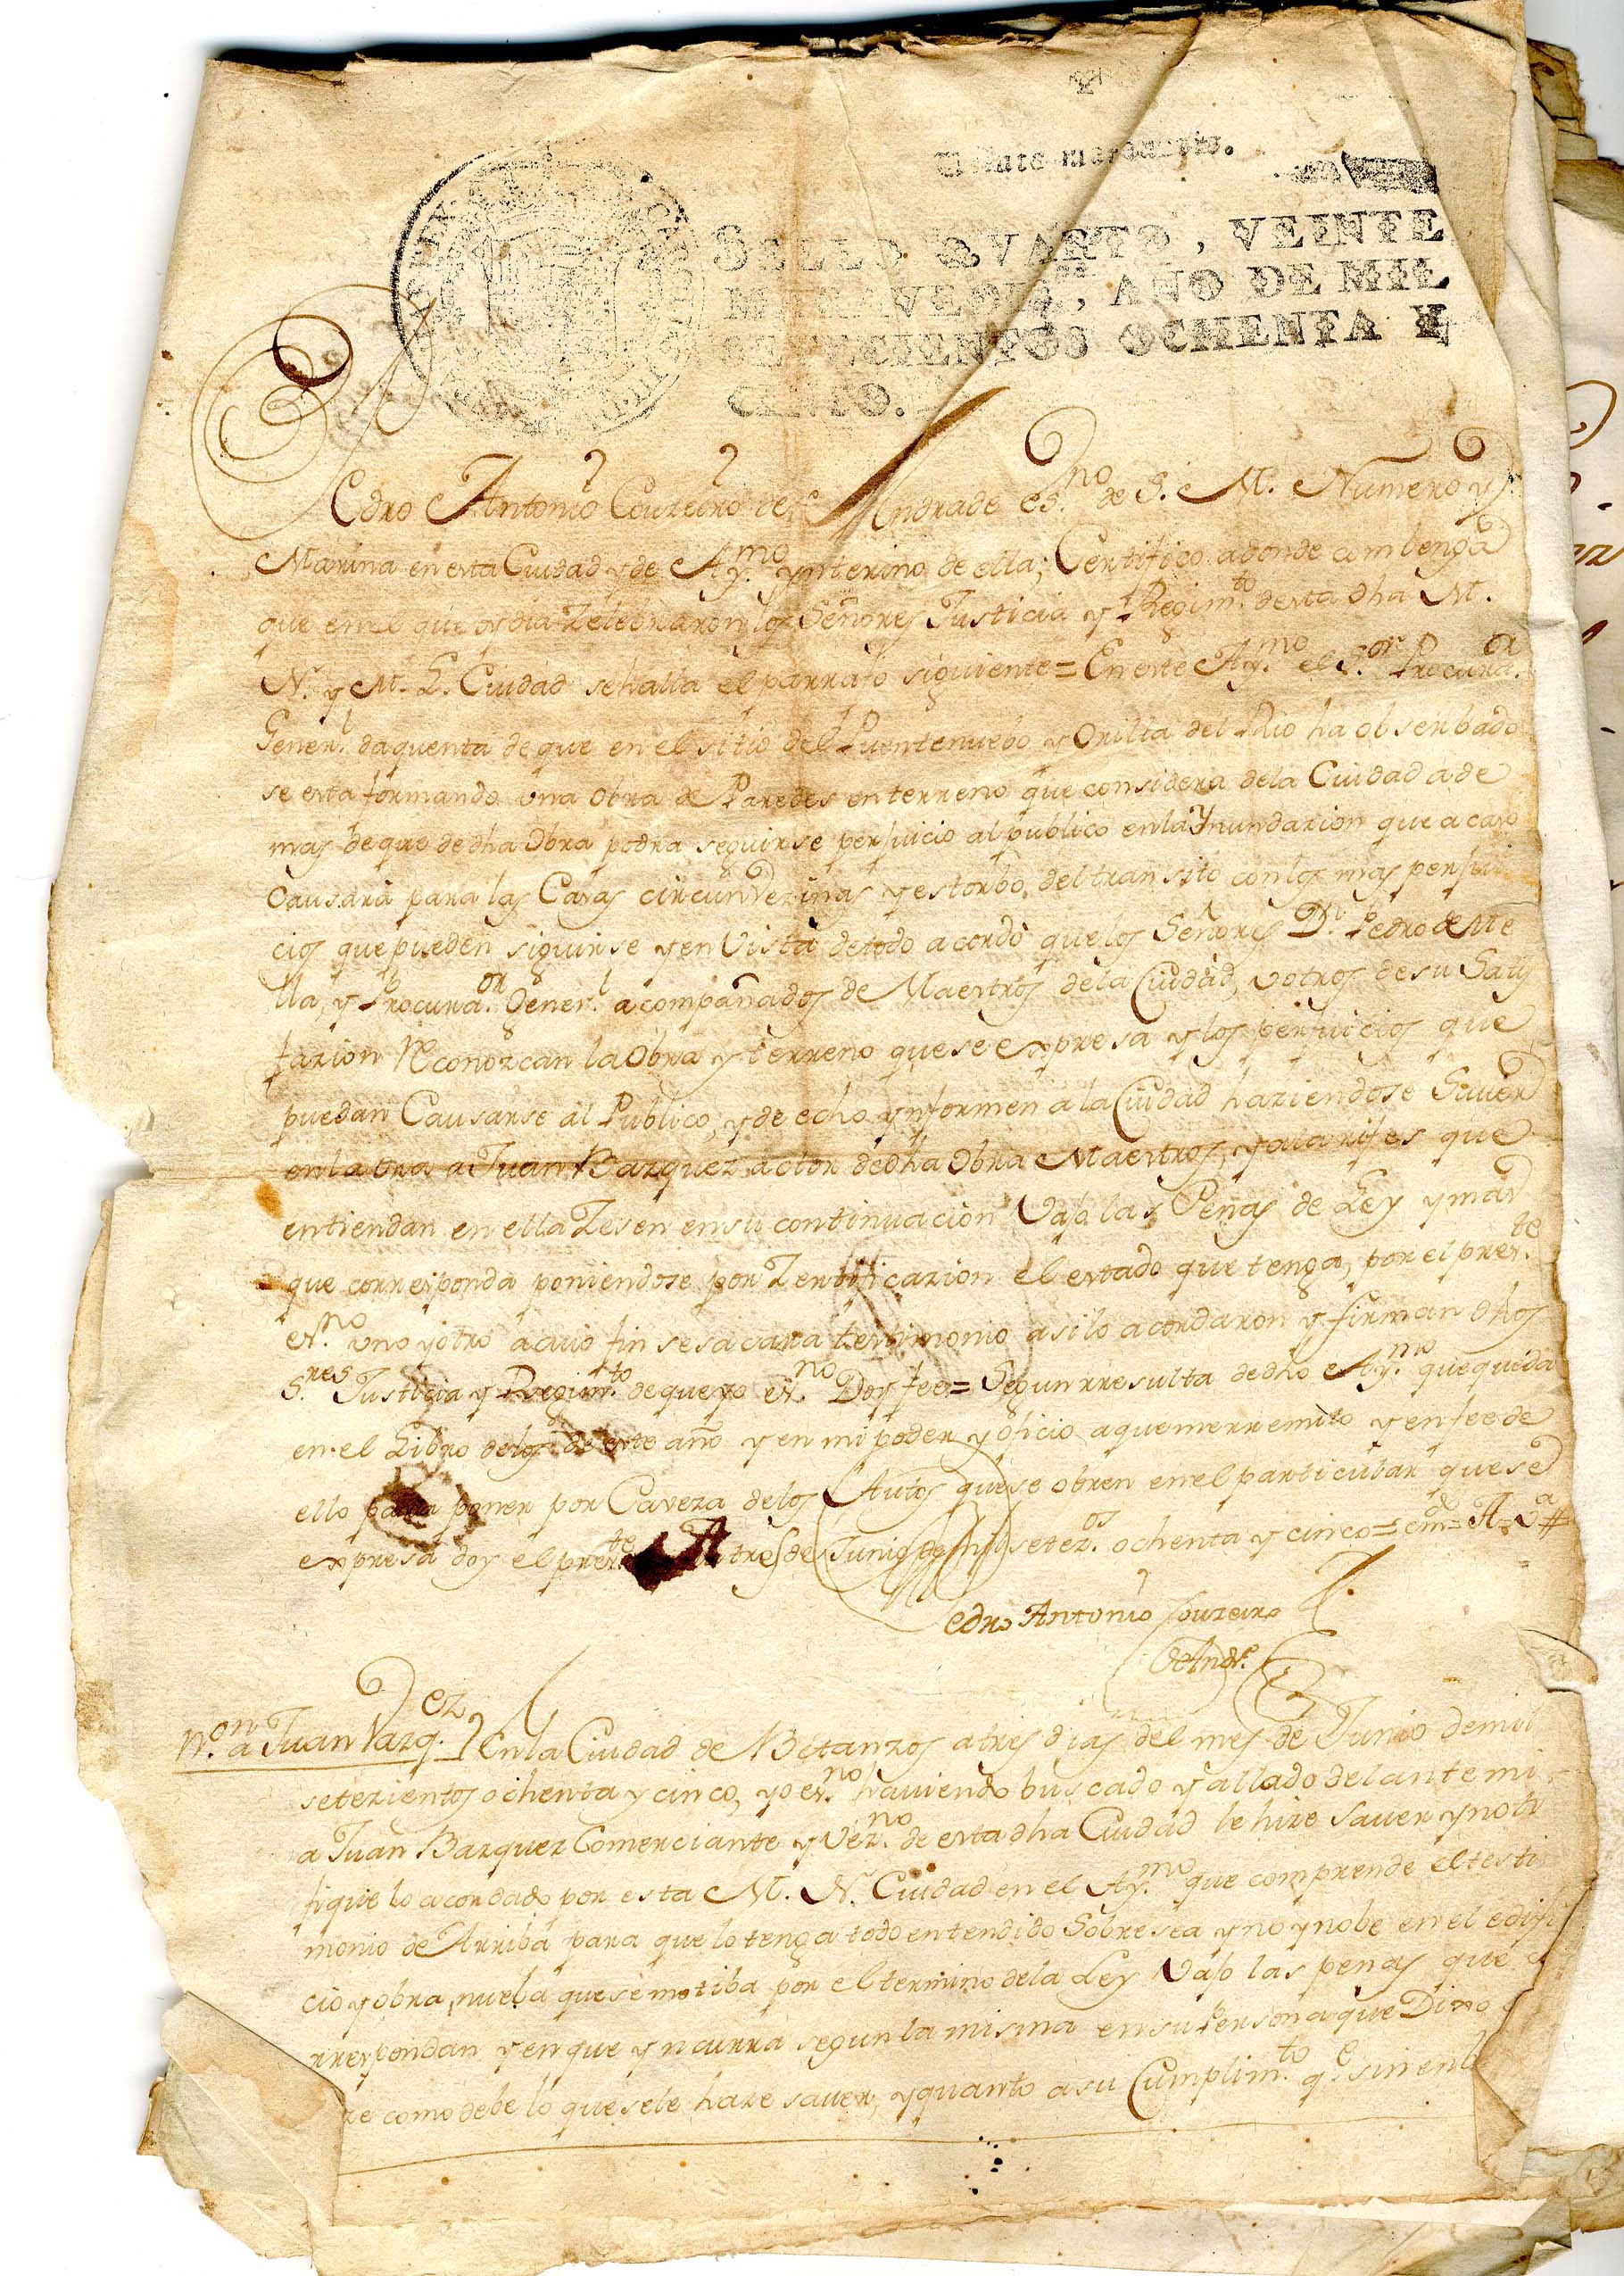 SELLO QVARTO, VEINTE
MARAVEDIS, AÑO DE MIL
SETECIENTOS OCHENTA Y
CINCO.
Pedro Antonio Couzeiro de Andrade es.no de S. M. Numero y
Marina en esta Ciudad y de Ay.mo ynterino de ella; Certifico adonde combenga
que en el que oy dia Zelebraron los Señores Justicia y Regim.to desta dha M.
N. y M. L. Ciudad se halla el parrafo siguiente = En este Ay.mo el S.or Procura.or
Gener.l da quenta de que en el sitio del Puentenuebo y Orilla del Rio ha obserbado
se esta formando una obra de Paredes en terreno que considera dela Ciudad a de
mas de que de dha Obra podra seguirse perjuicio al publico enla Ynundazion que acaso
Causara para las Casas circunvezinas y estorbo del transito con los mas perjui
cios que pueden siguirse y en Vista de todo acordò que los Señores Dn. Pedro de Me
lla, y Procura.or Gener.l acompañados de Maestros dela Ciudad, u otros de su Satis
fazion Reconozcan la Obra y terreno que se expresa y los perjuicios que
puedan Causarse al Publico, y de echo ynformen a la Ciudad haziendose Saver
enla ora a Juan Bazquez actor de dha Obra Maestros, y alarifes que
entiendan en ella Zesen en su continuacion Vajo las Penas de Ley y mas
que corresponda poniendose por Zertificazion el estado que tenga, por el pres.te
es.no uno y otro acuio fin se sacara testimonio asi lo acordaron y firman dhos
S.res Justicia y Regim.to de que yo es.no Doy fee = Segun rresulta de dho Ay.mo que queda
en el Libro delos de este año y en mi poder y oficio aque me rremito y en fee de
ello para poner por Caveza delos Autos que se obren en el particular que se
expresa doy el pres.te a tres de Junio de mil setez.os ochenta y cinco =
Pedro Antonio Couzeiro
de Andr.e
N.on a Juan Vazq.ez En la Ciudad de Betanzos a tres dias del mes de Junio de mil
setezientos ochenta y cinco, yo es.no haviendo buscado y allado delante mi
a Juan Bazquez Comerciante y Vez.no de esta dha Ciudad le hize saver y noti
fique lo acordado por esta M. N. Ciudad en el Ay.mo que comprende el testi
monio de Arriba para que lo tenga todo entendido Sobresea y no ynobe en el edifi
cio y obra nueba que se motiba por el termino dela Ley Vajo las penas que
rrespondan y en que yncurra segun la misma en su Persona que Dixo
ze como debe lo que se le haze saver, y quanto a su Cumplim.to q.e sin